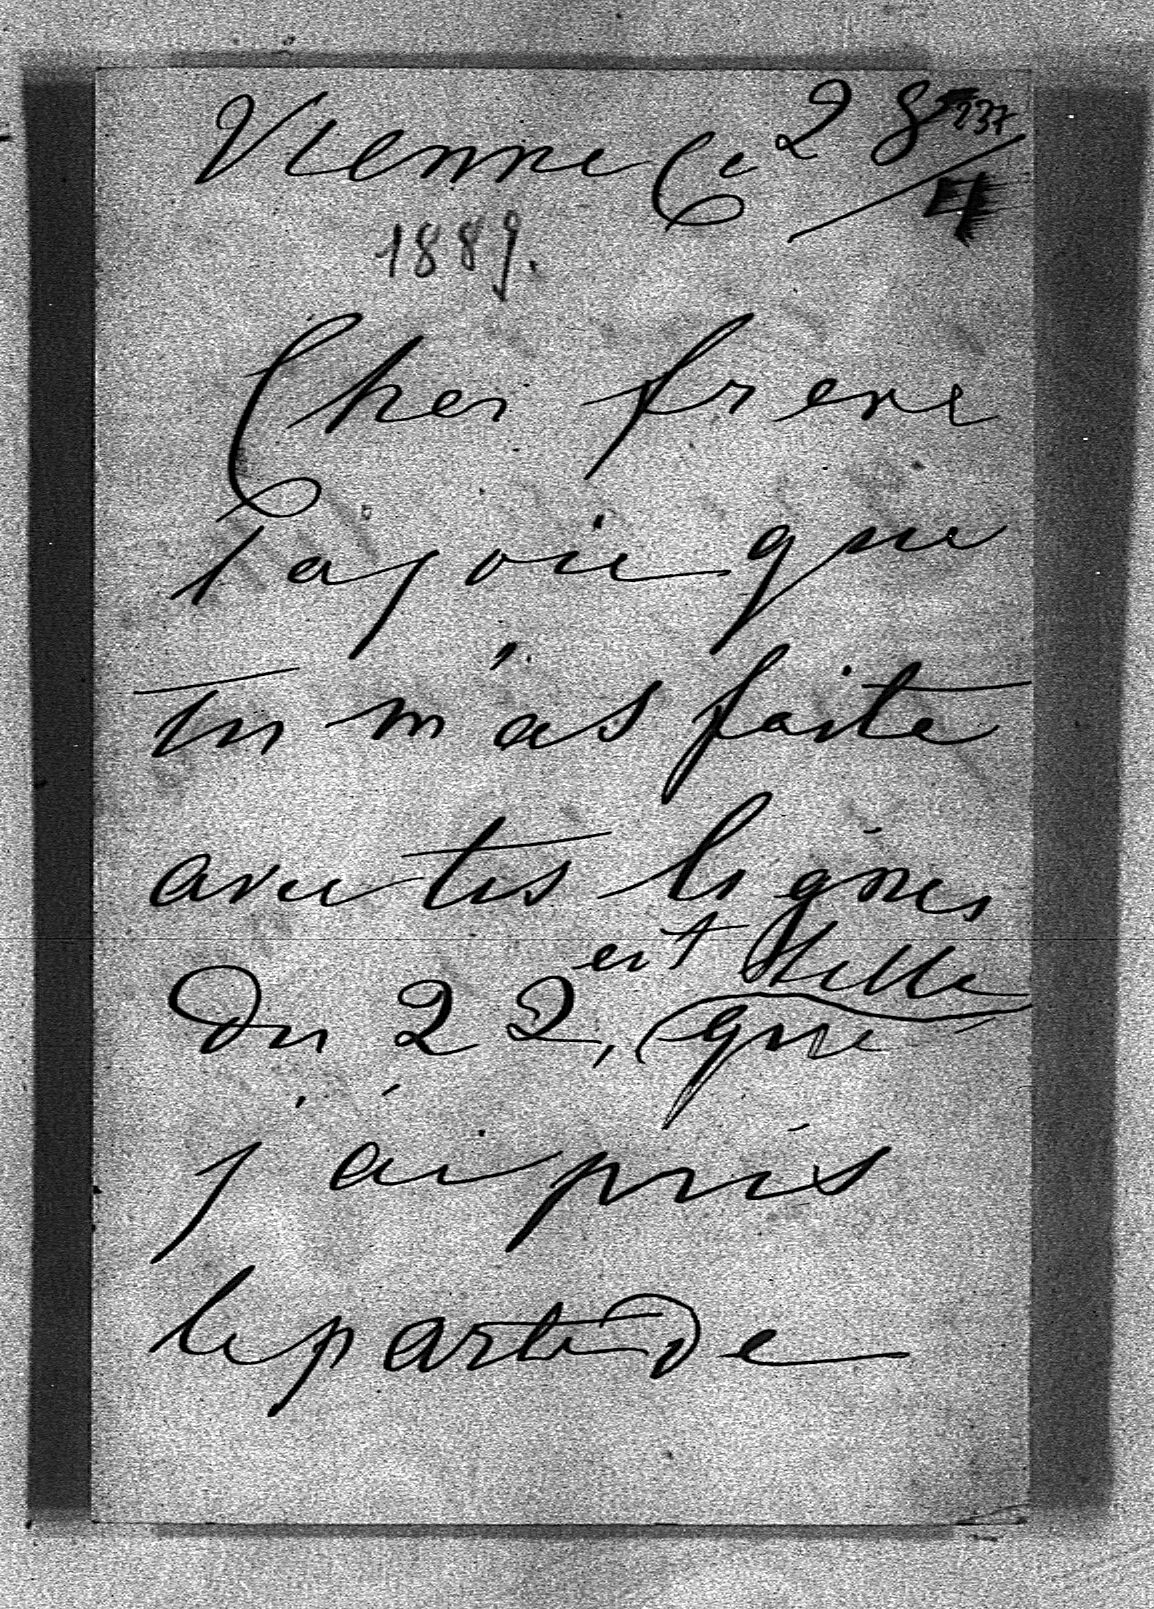 Vienne Ce 28/4
237
1889.
Cher frere
la joie que
tu m'as faite
avec tes lignes
du 22, est telle que
j'ai pris
le parti de